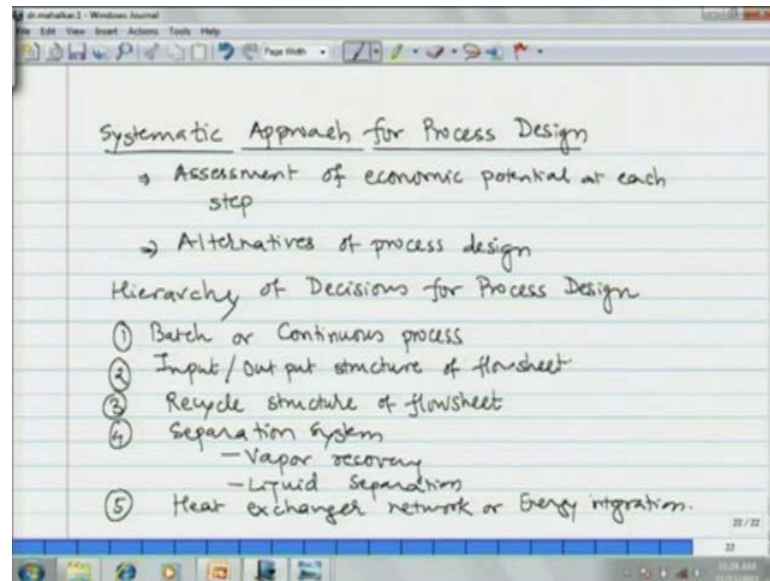 dr.mahalkar.1 - Windows Journal
File Edit View Insert Actions Tools Help
Page Width
Systematic Approach for Process Design
⇒ Assessment of economic potential at each
step
⇒ Alternatives of process design
Hierarchy of Decisions for Process Design
① Batch or Continuous process
② Input/Out put structure of flowsheet
③ Recycle structure of flowsheet
④ Separation System
- Vapor recovery
- Liquid Separation
⑤ Heat exchanger network or Energy intgration.
22/22
22